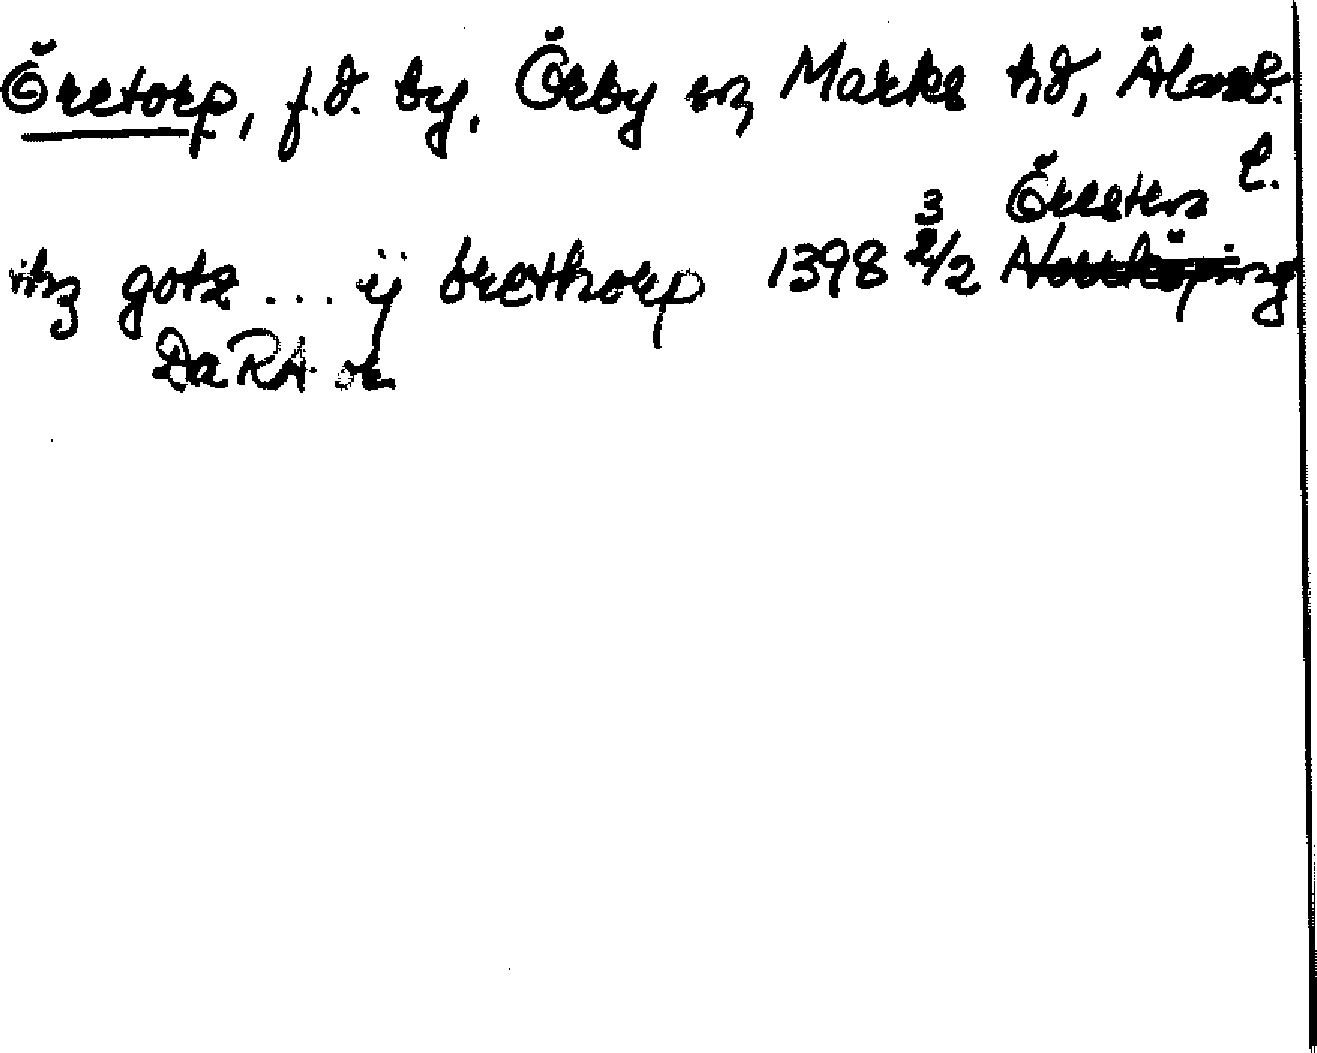 Öretorp, f.d. by, Örby sn, Marks hd, Älvsb.
l.
3 Öresten
itz gotz ... ij brethorp 1398 2/2 Norrköping
DaRA or.